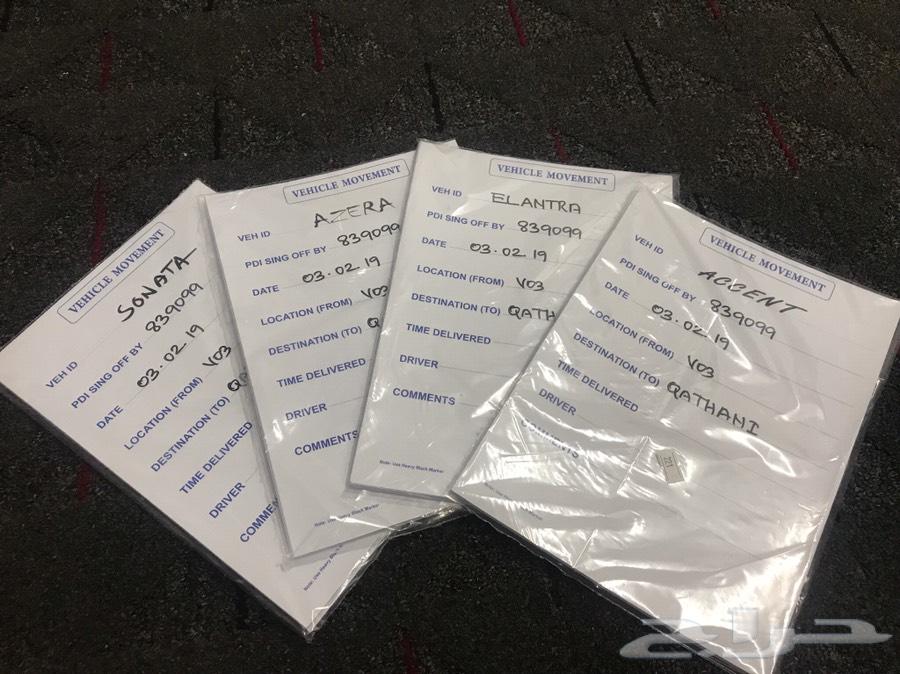 VEHICLE MOVEMENT
VEH ID SONATA
PDI SING OFF BY 839099
DATE 03.02.19
LOCATION (FROM) V03
DESTINATION (TO)
TIME DELIVERED
DRIVER
Note: Use Heavy Black Marker
VEHICLE MOVEMENT
VEH ID AZERA
PDI SING OFF BY 839099
DATE 03.02.19
LOCATION (FROM) V03
DESTINATION (TO) Q
TIME DELIVERED
DRIVER
COMMENTS
Note: Use Heavy Black Marker
VEHICLE MOVEMENT
VEH ID ELANTRA
PDI SING OFF BY 839099
DATE 03.02.19
LOCATION (FROM) V03
DESTINATION (TO) QATH
TIME DELIVERED
DRIVER
COMMENTS
Note: Use Heavy Black Marker
VEHICLE MOVEMENT
VEH ID ACCENT
PDI SING OFF BY 839099
DATE 03.02.19
LOCATION (FROM) V03
DESTINATION (TO) QATHANI
TIME DELIVERED
DRIVER
COMMENTS
221
حراج